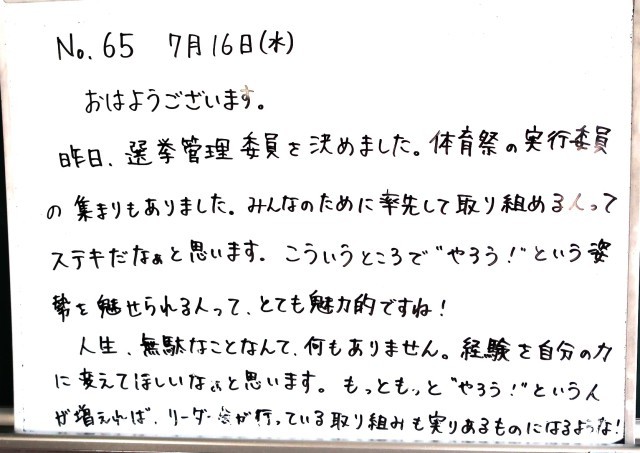 No.65 7月16日(水)
おはようございます。
昨日、選挙管理委員を決めました。体育祭の実行委員
の集まりもありました。みんなのために率先して取り組める人って
ステキだなぁと思います。こういうところで"やろう!"という姿
勢を魅せられる人って、とても魅力的ですね!
人生、無駄なことなんて、何もありません。経験を自分の力
に変えてほしいなぁと思います。もっともっと"やろう!"という人
が増えれば、リーダー会が行っている取り組みも実りあるものになるような!